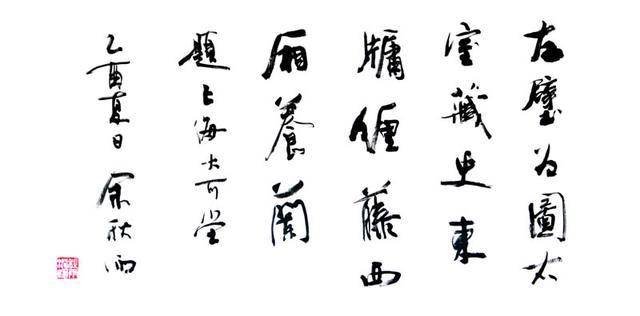 左壁为圖右
室藏史東
牖纏藤西
厢養蘭
題上海大可堂
乙酉夏日 余秋雨